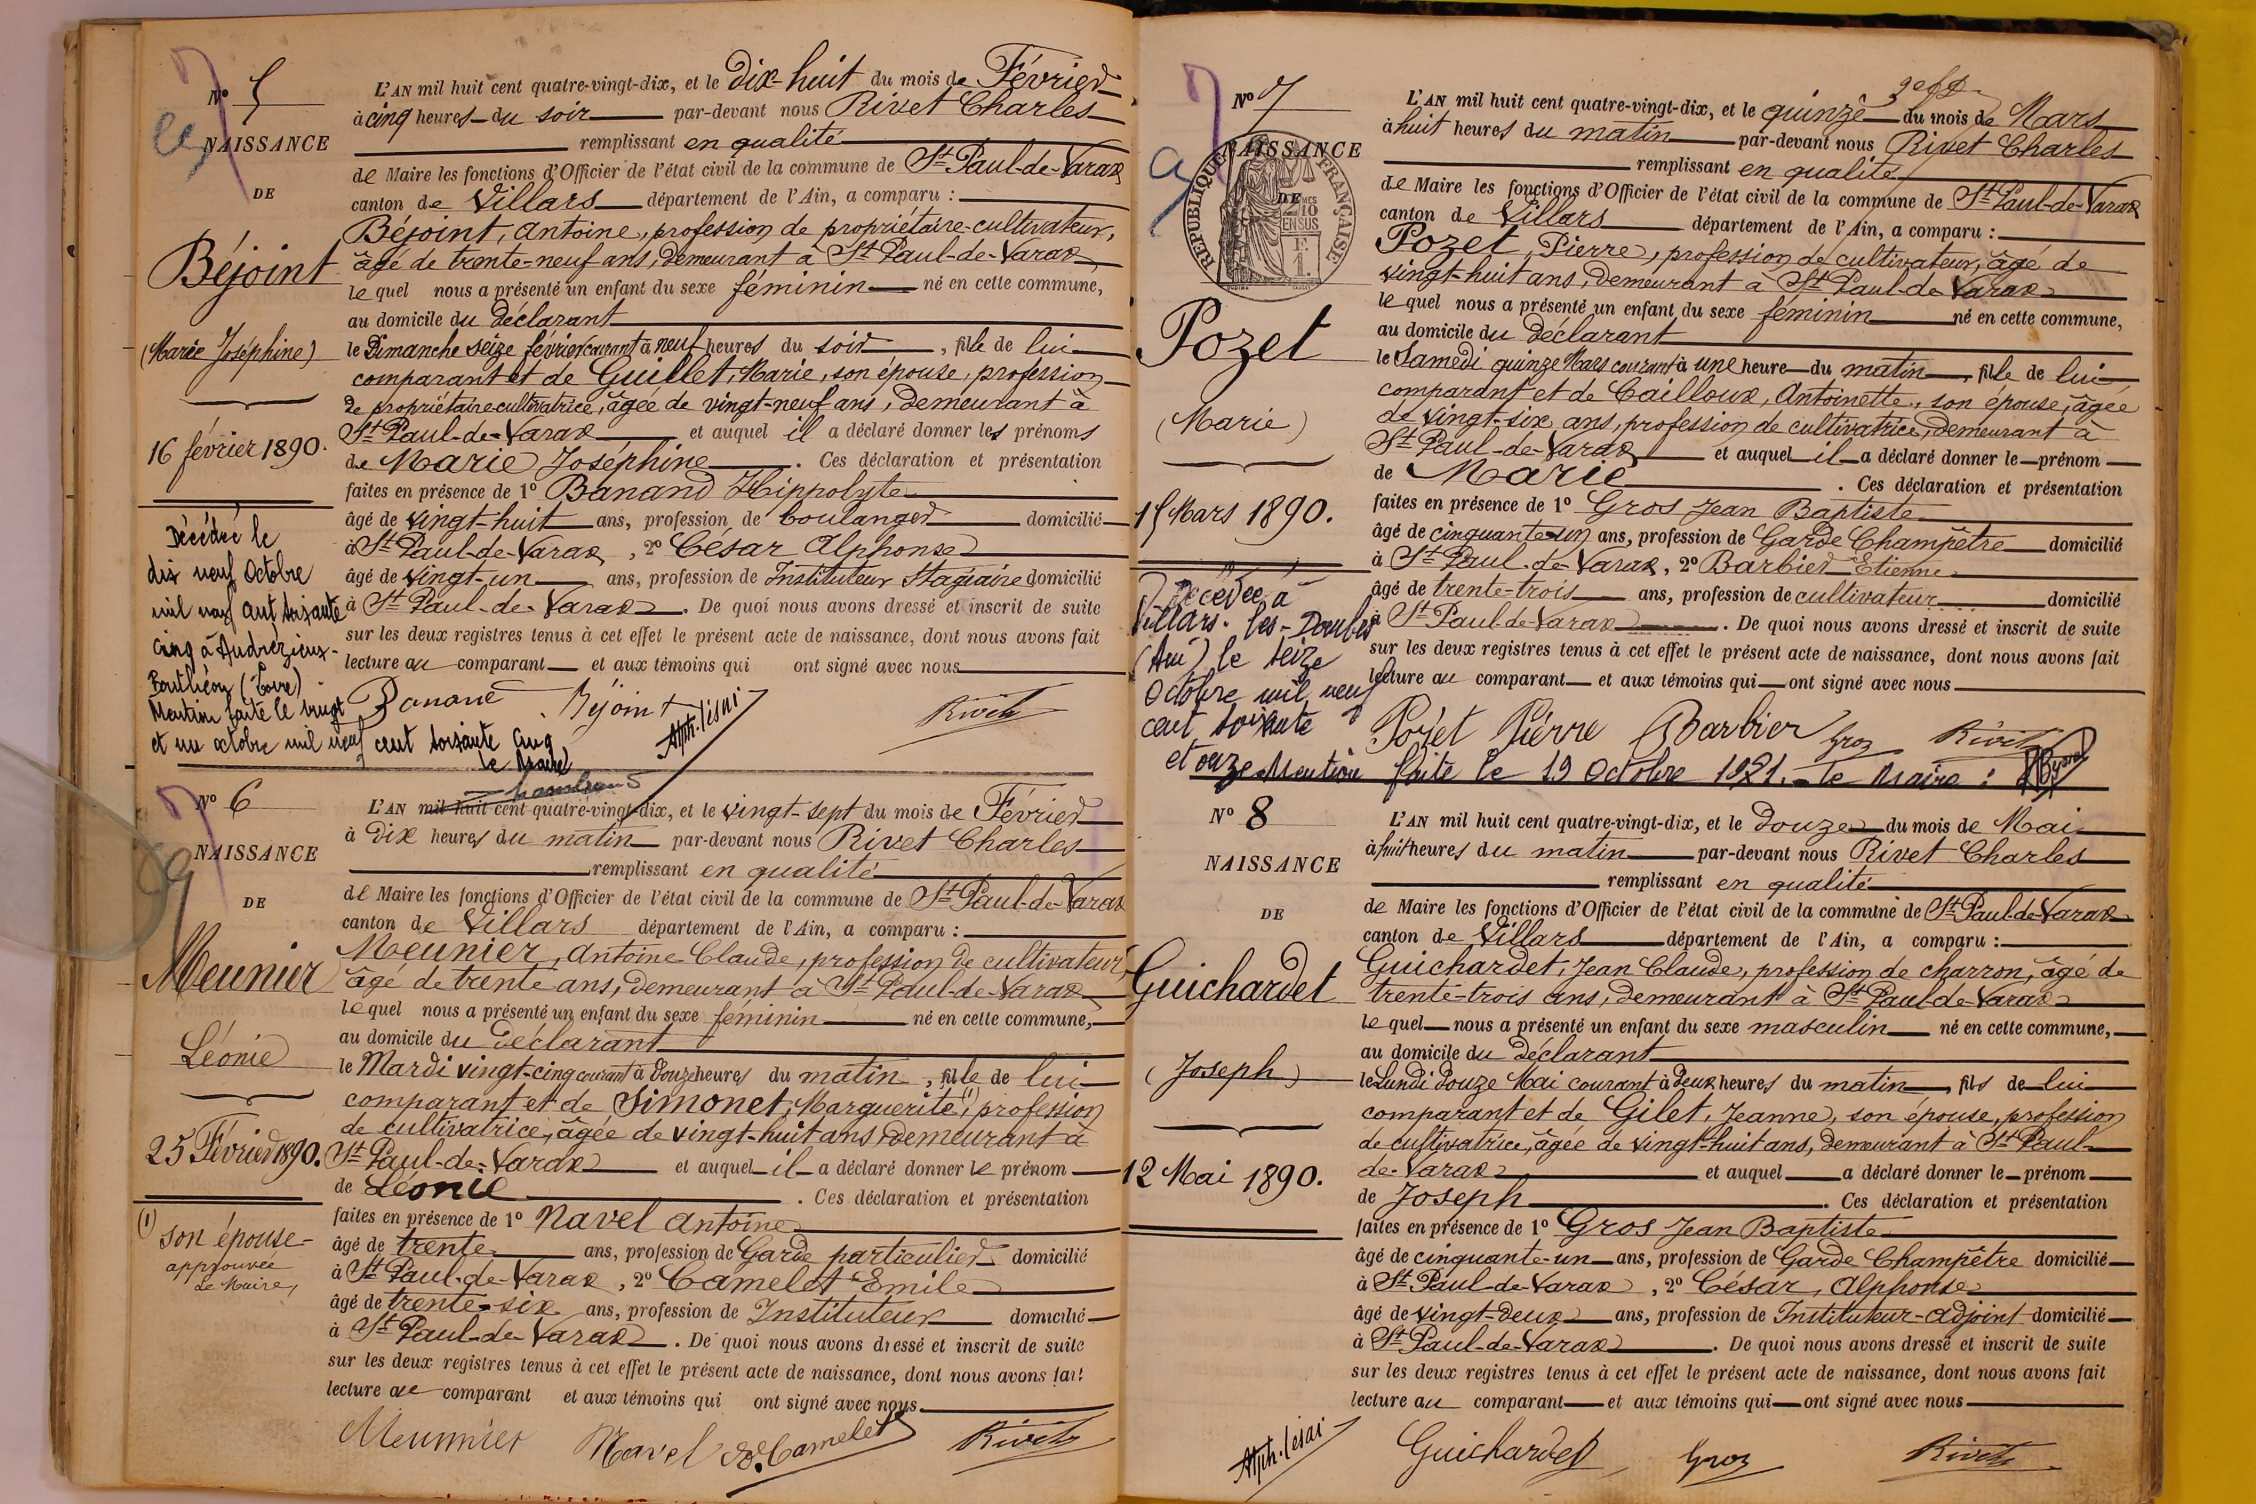 N° 5
NAISSANCE
DE
Béjoint
(Marie Joséphine)
16 février 1890.
Décédée le
dix neuf Octobre
mil neuf cent soixante
cinq à Andrézieux-
Bouthéon (Loire)
Mention faite le vingt
et un octobre mil neuf cent soixante cinq
Le Maire
L'AN mil huit cent quatre-vingt-dix, et le dix-huit du mois de Février
à cinq heures du soir par-devant nous Rivet Charles
remplissant en qualité
de Maire les fonctions d'Officier de l'état civil de la commune de St Paul-de-Varax
canton de Villars département de l'Ain, a comparu :
Béjoint, Antoine, profession de propriétaire-cultivateur,
âgé de trente-neuf ans, demeurant à St Paul-de-Varax
lequel nous a présenté un enfant du sexe féminin né en cette commune,
au domicile du déclarant
le Dimanche seize février courant à neuf heures du soir, fille de lui
comparant et de Guillet, Marie, son épouse, profession
de propriétaire-cultivatrice, âgée de vingt-neuf ans, demeurant à
St Paul-de-Varax et auquel il a déclaré donner les prénoms
de Marie Joséphine. Ces déclaration et présentation
faites en présence de 1° Banand Hippolyte
âgé de vingt-huit ans, profession de boulanger domicilié
à St Paul-de-Varax, 2° César Alphonse
âgé de vingt-un ans, profession de Instituteur Stagiaire domicilié
à St Paul-de-Varax. De quoi nous avons dressé et inscrit de suite
sur les deux registres tenus à cet effet le présent acte de naissance, dont nous avons fait
lecture au comparant et aux témoins qui ont signé avec nous
Banand Béjoint Alph. Césai Rivet
N° 6
NAISSANCE
DE
Meunier
Léonie
25 Février 1890.
(1) son épouse-
approuvée
Le Maire,
L'AN mil huit cent quatre-vingt-dix, et le vingt-sept du mois de Février
à dix heures du matin par-devant nous Rivet Charles
remplissant en qualité
de Maire les fonctions d'Officier de l'état civil de la commune de St Paul-de-Varax
canton de Villars département de l'Ain, a comparu :
Meunier, Antoine Claude, profession de cultivateur
âgé de trente ans, demeurant à St Paul-de-Varax
lequel nous a présenté un enfant du sexe féminin né en cette commune,
au domicile du déclarant
le Mardi vingt-cinq courant à douze heures du matin, fille de lui
comparant et de Simonet, Marguerite (1), profession
de cultivatrice, âgée de vingt-huit ans demeurant à
St Paul-de-Varax et auquel il a déclaré donner le prénom
de Léonie. Ces déclaration et présentation
faites en présence de 1° Navel Antoine
âgé de trente ans, profession de Garde particulier domicilié
à St Paul-de-Varax, 2° Camelet Emile
âgé de trente-six ans, profession de Instituteur domicilié
à St Paul-de-Varax. De quoi nous avons dressé et inscrit de suite
sur les deux registres tenus à cet effet le présent acte de naissance, dont nous avons fait
lecture au comparant et aux témoins qui ont signé avec nous.
Meunnier Navel E. Camelet Rivet
N° 7
NAISSANCE
DE
RÉPUBLIQUE FRANÇAISE
2 10
EN SUS
Pozet
(Marie)
15 Mars 1890.
Décédée à
Villars-les-Dombes
(Ain) le seize
Octobre mil neuf
cent soixante
et onze. Mention faite le 19 Octobre 1971. Le Maire :
L'AN mil huit cent quatre-vingt-dix, et le quinze du mois de Mars
à huit heures du matin par-devant nous Rivet Charles
remplissant en qualité
de Maire les fonctions d'Officier de l'état civil de la commune de St Paul-de-Varax
canton de Villars département de l'Ain, a comparu :
Pozet, Pierre, profession de cultivateur, âgé de
vingt-huit ans, demeurant à St Paul-de-Varax
lequel nous a présenté un enfant du sexe féminin né en cette commune,
au domicile du déclarant
le Samedi quinze Mars courant à une heure du matin, fille de lui
comparant et de Cailloux, Antoinette, son épouse, âgée
de vingt-six ans, profession de cultivatrice, demeurant à
St Paul-de-Varax et auquel il a déclaré donner le prénom
de Marie. Ces déclaration et présentation
faites en présence de 1° Gros Jean Baptiste
âgé de cinquante-un ans, profession de Garde Champêtre domicilié
à St Paul-de-Varax, 2° Barbier Etienne
âgé de trente-trois ans, profession de cultivateur domicilié
à St Paul-de-Varax. De quoi nous avons dressé et inscrit de suite
sur les deux registres tenus à cet effet le présent acte de naissance, dont nous avons fait
lecture au comparant et aux témoins qui ont signé avec nous
Pozet Pierre Barbier Groz Rivet
N° 8
NAISSANCE
DE
Guichardet
(Joseph)
12 Mai 1890.
L'AN mil huit cent quatre-vingt-dix, et le douze du mois de Mai
à huit heures du matin par-devant nous Rivet Charles
remplissant en qualité
de Maire les fonctions d'Officier de l'état civil de la commune de St Paul-de-Varax
canton de Villars département de l'Ain, a comparu :
Guichardet, Jean Claude, profession de charron, âgé de
trente-trois ans, demeurant à St Paul-de-Varax
lequel nous a présenté un enfant du sexe masculin né en cette commune,
au domicile du déclarant
le Lundi douze Mai courant à deux heures du matin, fils de lui
comparant et de Gilet, Jeanne, son épouse, profession
de cultivatrice, âgée de vingt-huit ans, demeurant à St Paul-
de-Varax et auquel a déclaré donner le prénom
de Joseph. Ces déclaration et présentation
faites en présence de 1° Gros Jean Baptiste
âgé de cinquante-un ans, profession de Garde Champêtre domicilié
à St Paul-de-Varax, 2° César, Alphonse
âgé de vingt-deux ans, profession de Instituteur-adjoint domicilié
à St Paul-de-Varax. De quoi nous avons dressé et inscrit de suite
sur les deux registres tenus à cet effet le présent acte de naissance, dont nous avons fait
lecture au comparant et aux témoins qui ont signé avec nous
Alph. Césai Guichardet Groz Rivet